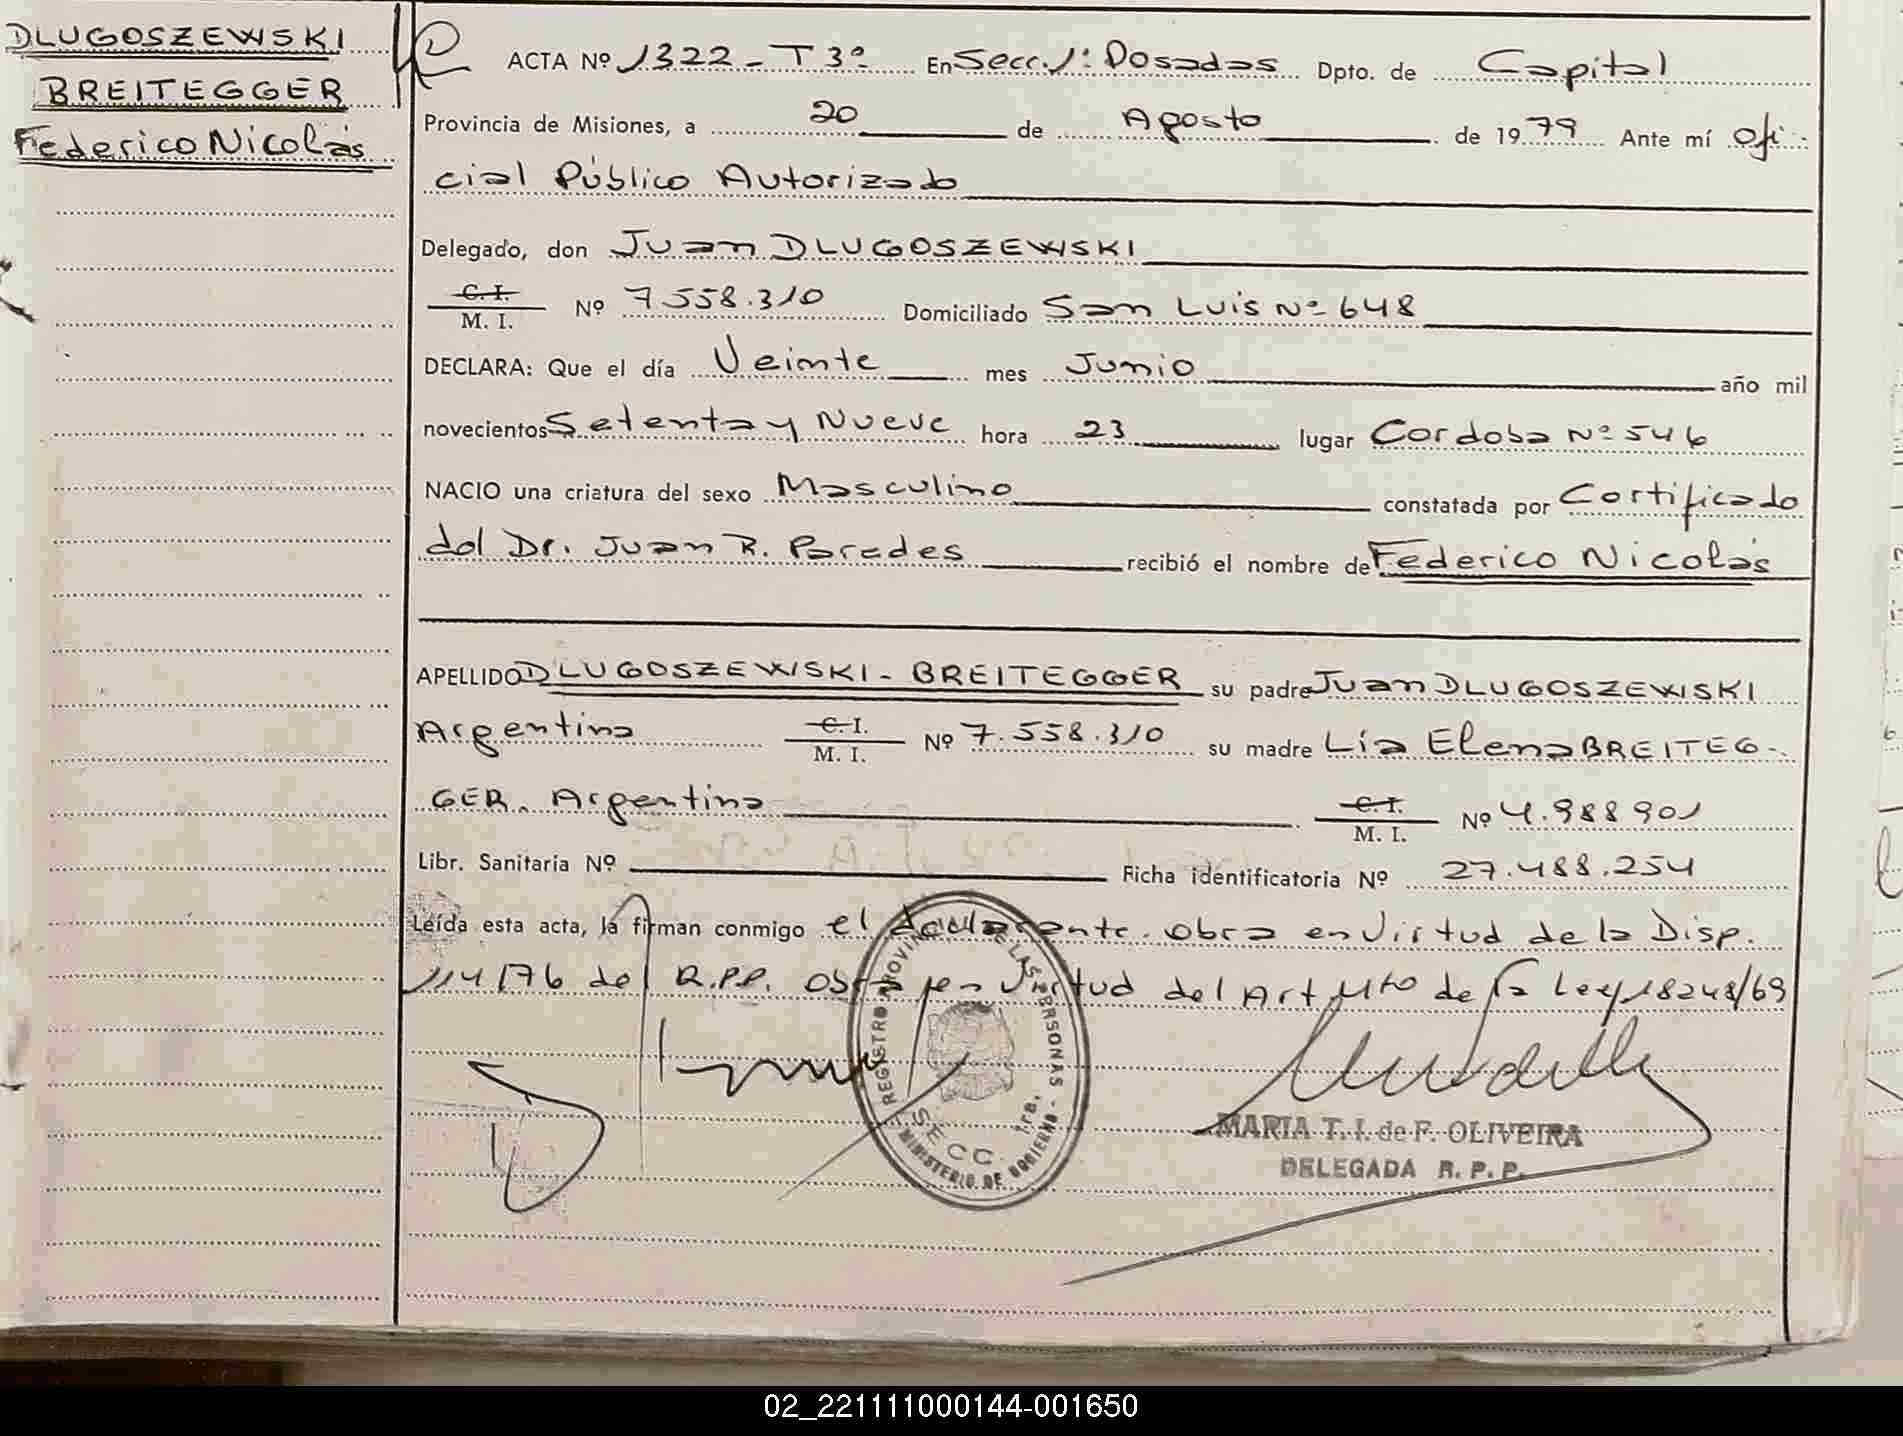 DLUGOSZEWSKI
BREITEGGER
Federico Nicolás
ACTA Nº 1322 - T 3º En Secc. 1ª Posadas Dpto. de Capital
Provincia de Misiones, a 20 de Agosto de 1979 Ante mí Ofi-
cial Público Autorizado
Delegado, don Juan DLUGOSZEWSKI
C. I.
M. I. Nº 7.558.310 Domiciliado San Luis Nº 648
DECLARA: Que el día Veinte mes Junio año mil
novecientos Setenta y Nueve hora 23 lugar Cordoba Nº 546
NACIO una criatura del sexo Masculino constatada por Certificado
del Dr. Juan R. Paredes recibió el nombre de Federico Nicolás
APELLIDO DLUGOSZEWSKI - BREITEGGER su padre Juan DLUGOSZEWSKI
Argentino C. I.
M. I. Nº 7.558.310 su madre Lía Elena BREITEG-
GER. Argentina C. I.
M. I. Nº 4.988901
Libr. Sanitaria Nº Ficha identificatoria Nº 27.488.254
Leída esta acta, la firman conmigo el declarante. obra en Virtud de la Disp.
114/76 del R.P.P. Obra en Virtud del Art 4to de la Ley 18248/69
REGISTRO PROVINCIAL DE LAS PERSONAS
SECC. 1ra.
MINISTERIO DE GOBIERNO
MARIA T. I. de F. OLIVEIRA
DELEGADA R. P. P.
02_221111000144-001650